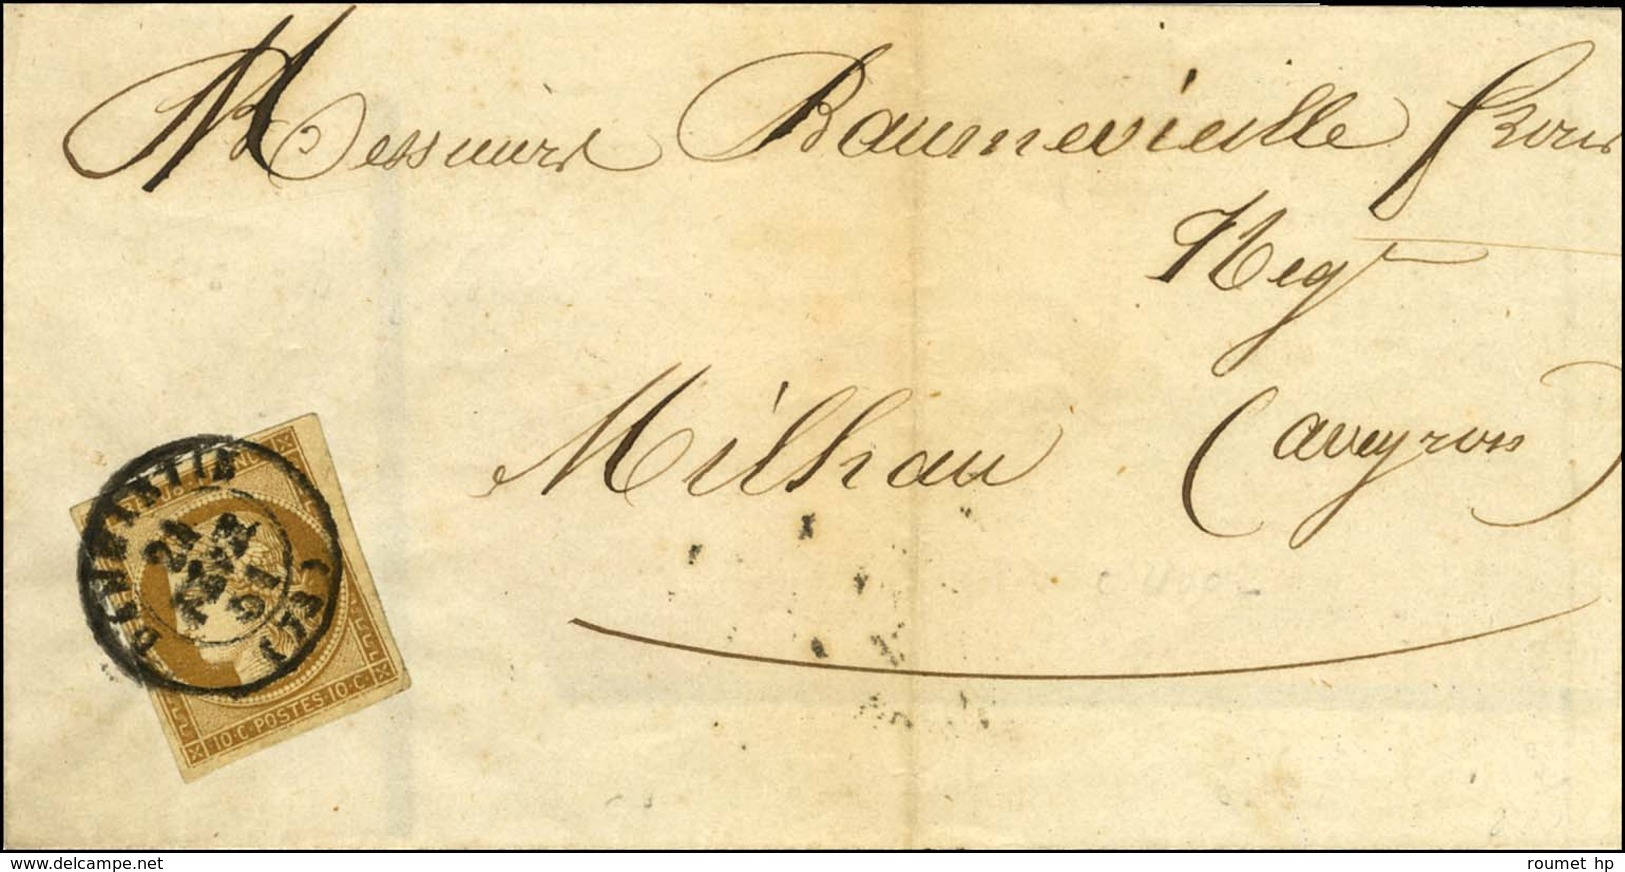 Messieurs Baumevieille frères
Negts
Milhau (aveyron)
10·C·POSTES·10·C·
www.delcampe.net
roumet hp